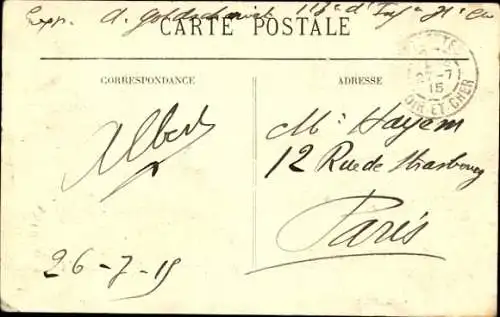 Exp. A. Goldschmidt 113e d'Inf.
CARTE POSTALE
CORRESPONDANCE
ADRESSE
27-7
15
LOIR ET CHER
Albert
Mr Hayem
12 Rue de Strasbourg
Paris
26-7-15